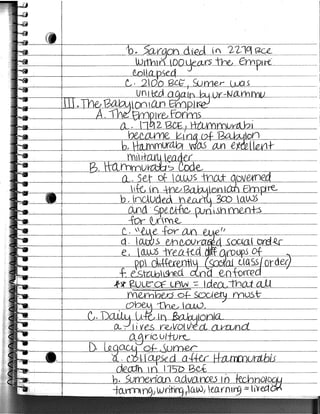 b. Sargon died in 2279 BCE
within 100 years the empire
collapsed
c. 2100 BCE, Sumer was
united again by Ur-Nammu
III. The Babylonian Empire
A. The Empire Forms
a. 1792 BCE, Hammurabi
became King of Babylon
b. Hammurabi was an excellent
military leader
B. Hammurabi's Code
a. Set of laws that governed
life in the Babylonian Empire
b. included nearly 300 laws
and specific punishments
for crime
c. "eye for an eye"
d. laws encouraged social order
e. laws treated diff groups of
ppl differently (social class/order)
f. established and enforced
** RULE OF LAW = Idea that all
members of society must
obey the law.
C. Daily Life in Babylonia
a. lives revolved around
agriculture
D. Legacy of Sumer
a. collapsed after Hammurabis
death in 1750 BCE
b. Sumerian advances in technology
farming, writing, law, learning = lived on